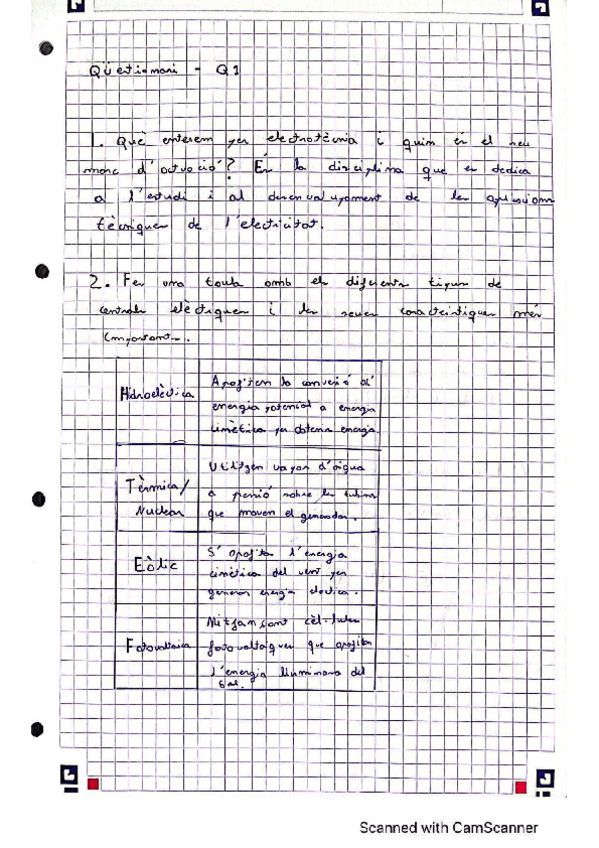 Qüestionari - Q1
1. Què entenem per electrotècnia i quin és el seu
marc d'actuació? És la disciplina que es dedica
a l'estudi i al desenvolupament de les aplicacions
tècniques de l'electricitat.
2. Fes una taula amb els diferents tipus de
centrals elèctriques i les seves característiques més
importants.
Hidroelèctrica
Aprofiten la conversió d'
energia potencial a energia
cinètica per obtenir energia.
Tèrmica/
Nuclear
Utilitzen vapor d'aigua
a pressió sobre les turbines
que mouen el generador.
Eòlic
S'aprofita l'energia
cinètica del vent per
generar energia elèctrica.
Fotovoltaica
Mitjançant cèl·lules
fotovoltaiques que aprofiten
l'energia lluminosa del
Sol.
Scanned with CamScanner